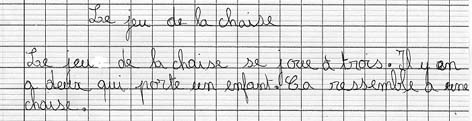 Le jeu de la chaise
Le jeu de la chaise se joue à trois. Il y en
a deux qui porte un enfant. Ca ressemble à une
chaise.